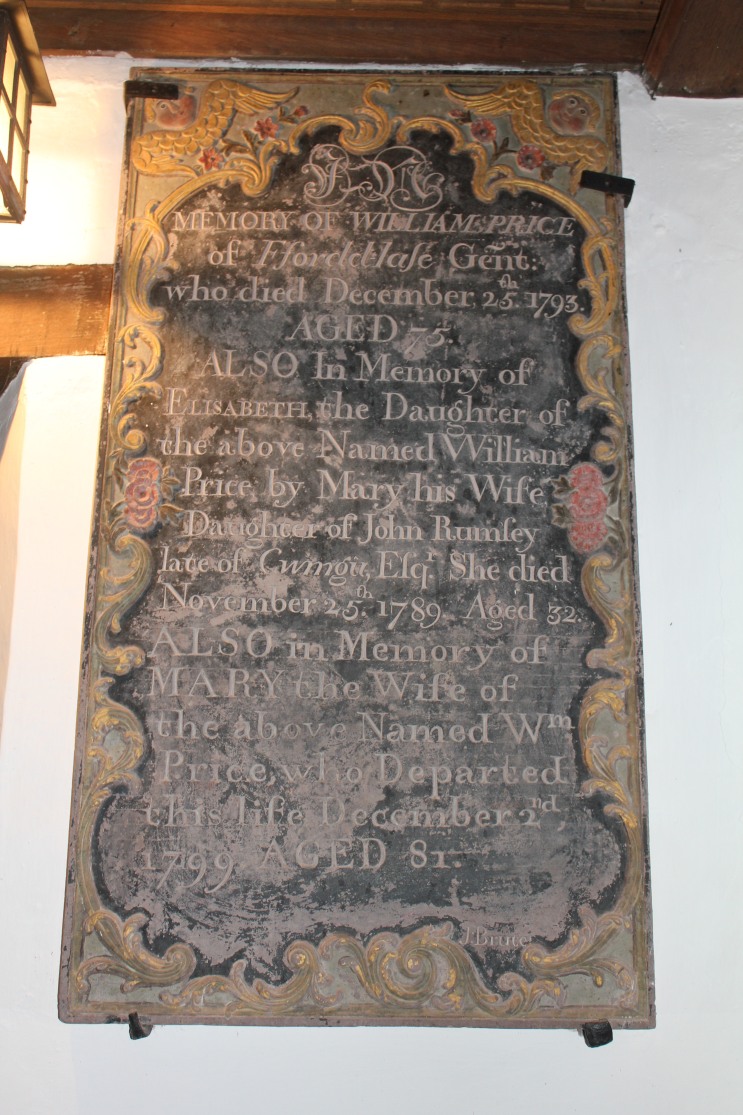 IN
MEMORY OF WILLIAM PRICE
of Ffordd-lase Gent:
who died December 25th 1793.
AGED 75.
ALSO In Memory of
ELISABETH the Daughter of
the above Named William
Price by Mary his Wife
Daughter of John Rumsey
late of Cwmgu, Esqr She died
November 25th 1789. Aged 32.
ALSO in Memory of
MARY the Wife of
the above Named Wm
Price, who Departed
this life December 2nd,
1799. AGED 81.
J Brute